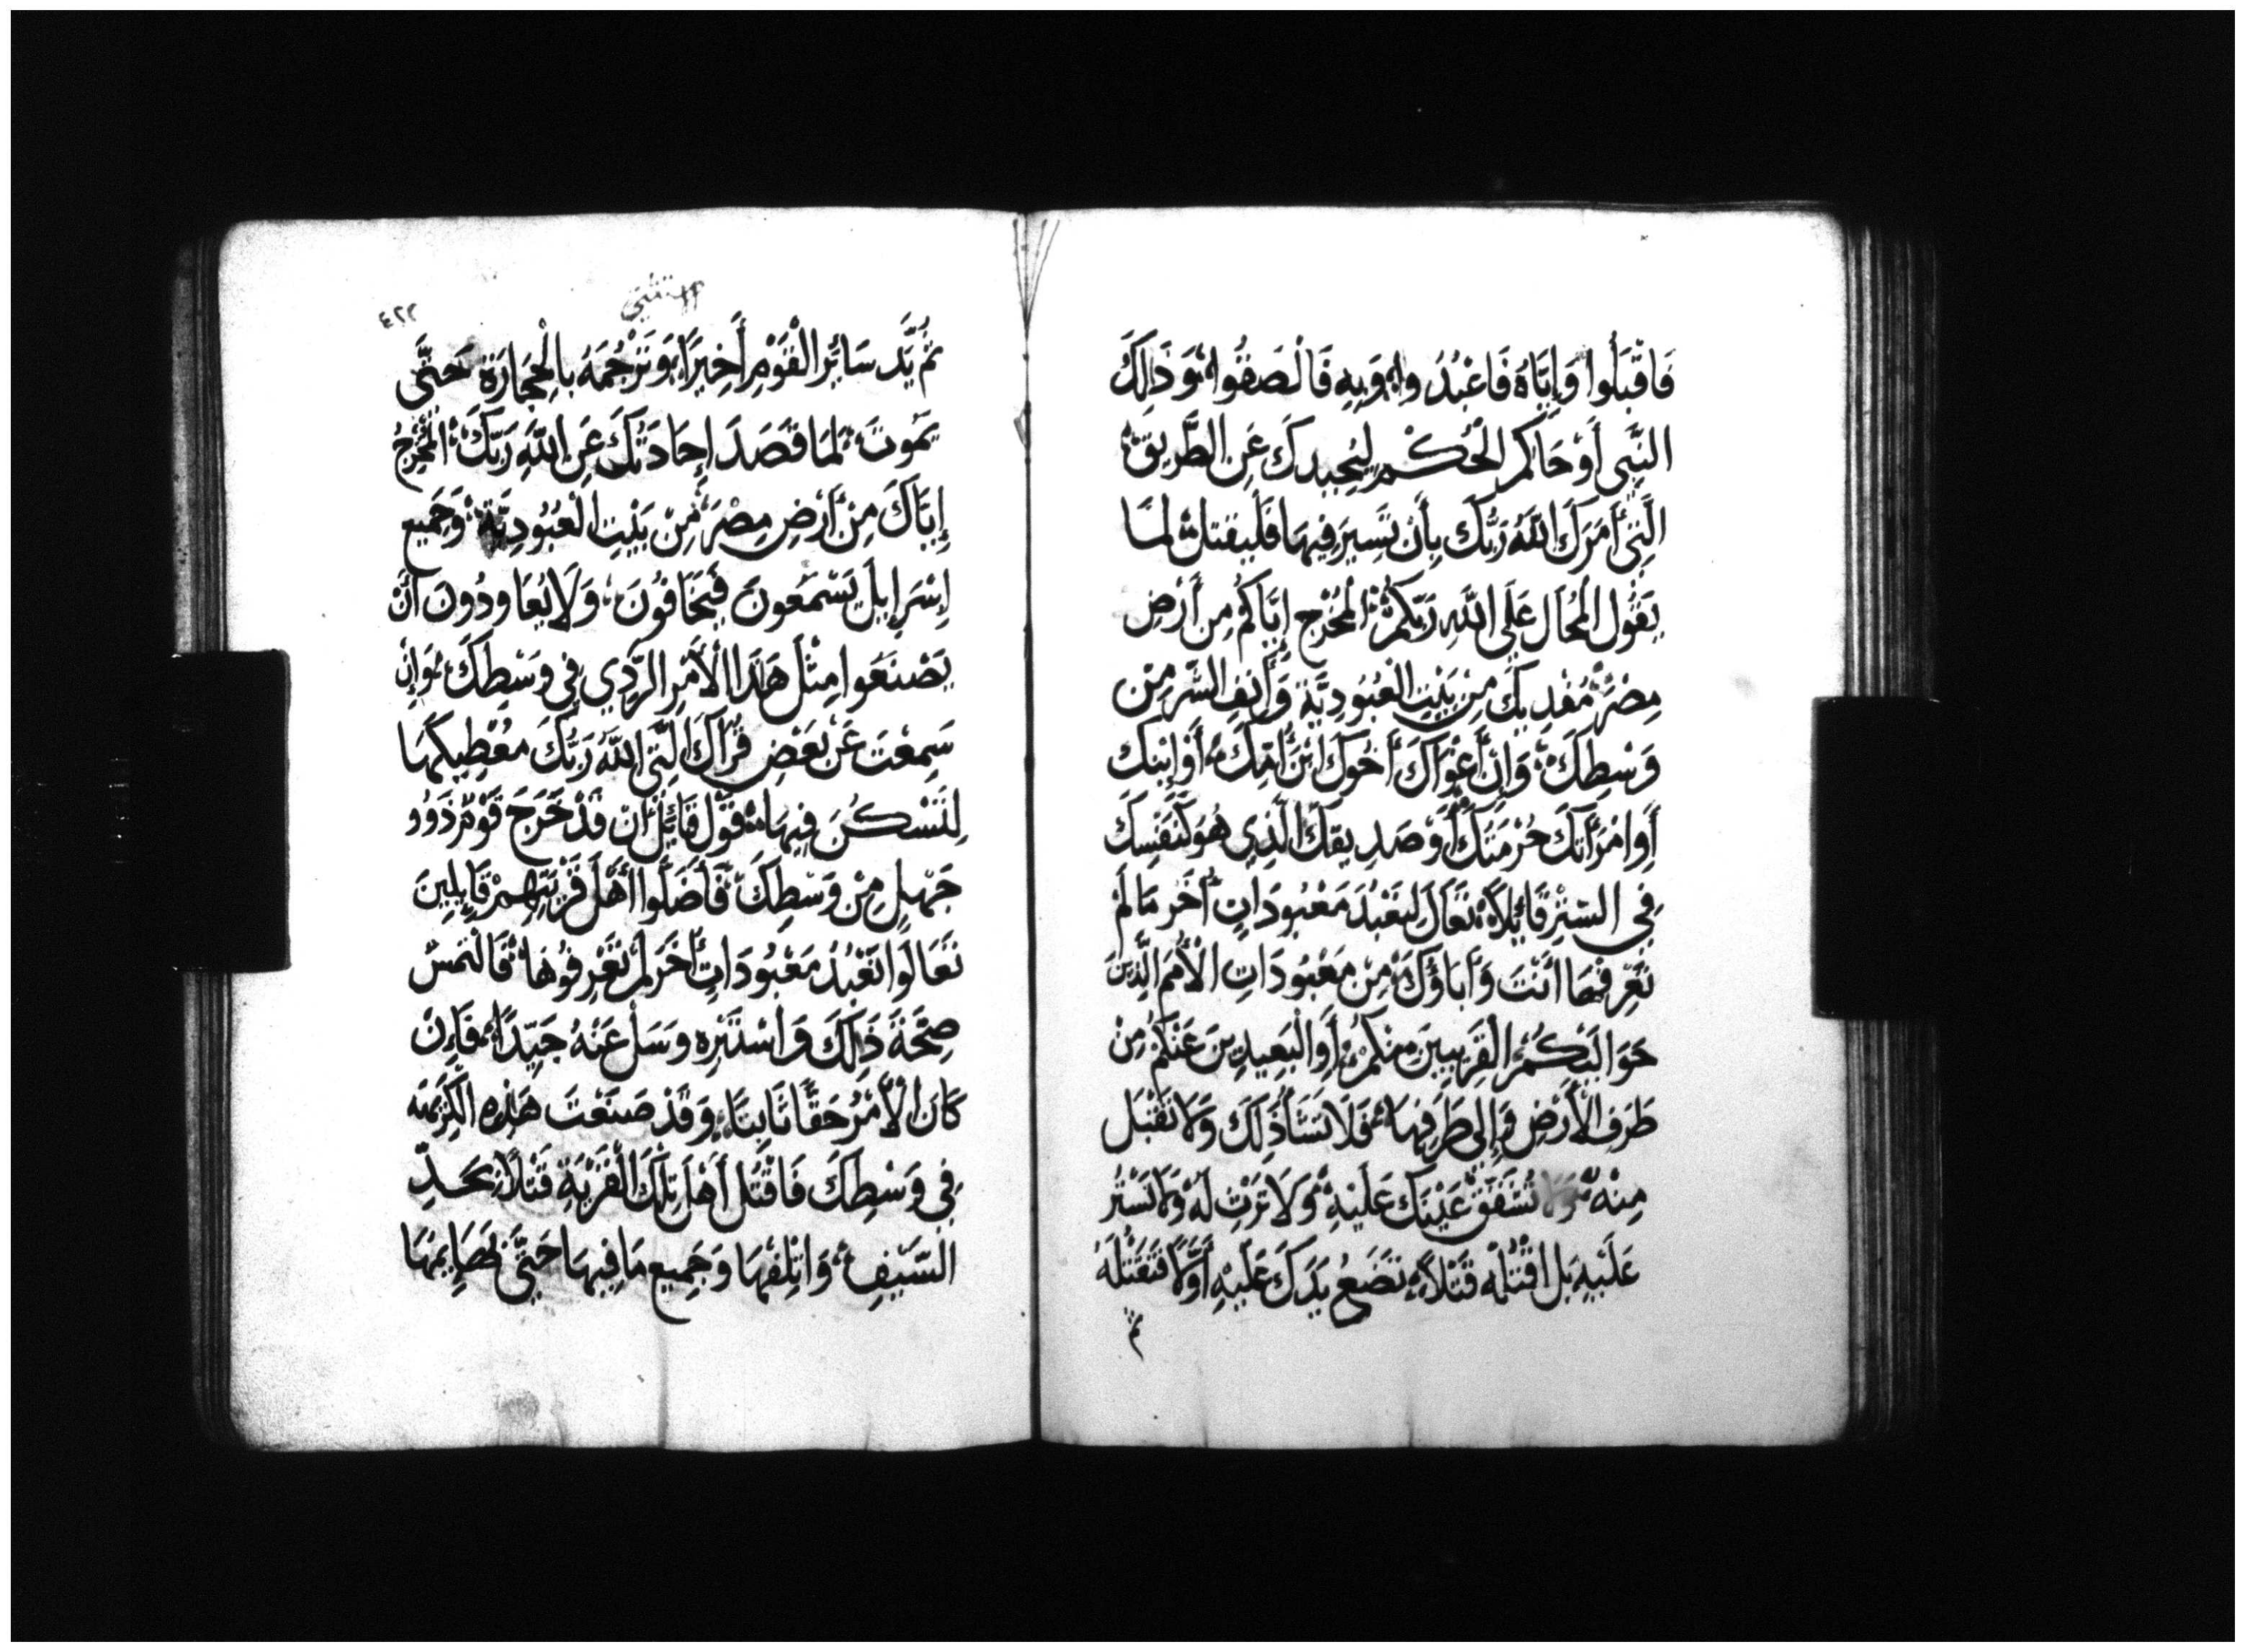 فَاقْبَلُوا وَإِيَّاهُ فَاعْبُدُوا وَبِهِ فَالْصَقُوا وَذَلِكَ
النَّبِي أَوْ حَاكِم الْحُكْمِ لِيُحِيدكَ عَنِ الطَّرِيقِ
الَّتِي أَمَرَكَ اللَّهُ رَبُّكَ بِأَن تَسِيرَ فِيهَا فَلْيُقتل لِمَا
يَقُول الْمُحَال عَلَى اللَّهِ رَبِّكُمْ الْمُخْرِج إِيَّاكُمْ مِن أَرْضِ
مِصْرَ مُفْدِيكَ مِنْ بَيْتِ الْعُبُودِيَّةِ وَأَنفِ الشَّر مِنْ
وَسْطِكَ وَإِنْ أَغْوَاكَ أَخُوكَ ابْنُ أُمِّكَ أَوْ ابْنك
أَوِ امْرَأَتكَ حُرْمَتكَ أَوْ صَدِيقكَ الَّذِي هُوَ كَنَفسِكَ
فِي السِّتْرِ قَائِلًا تَعَالَ لنَعْبُدَ مَعْبُودَاتٍ أُخَر مَا لَمْ
تَعْرِفْهَا أَنْتَ وَآبَاؤُكَ مِنْ مَعْبُودَاتِ الْأُمَمِ الَّذِينَ
حَوَالَيْكُمُ الْقَرِيبِينَ مِنْكُمْ أَوِ الْبَعِيدِينَ عَنْكُمْ مِنْ
طَرَفِ الْأَرْضِ وَإِلَى طَرَفِهَا فَلَا تَشَأْ ذَلِكَ وَلَا تَقْبَل
مِنْهُ وَلَا تُشْفق عَيْنكَ عَلَيْهِ وَلَا تَرْثِ لَهُ وَلَا تَسْتُر
عَلَيْهِ بَلِ اقْتُلْهُ قَتْلًا تَضَعُ يَدَكَ عَلَيْهِ أَوَّلًا فَتَقْتُلَهُ
ثم
الاستثنى
٤٢٢
ثُمَّ يَد سَائِر الْقَوْمِ أَخِيرًا وَتَرْجُمَهُ بِالْحِجَارَةِ حَتَّى
يَمُوتَ لِمَا قَصَدَ إِحَادَتكَ عَنِ اللَّهِ رَبِّكَ الْمُخْرِجُ
إِيَّاكَ مِنْ أَرْضِ مِصْرَ مِنْ بَيْتِ الْعُبُودِيَّةِ وَجَمِيع
إِسْرَايِل يَسْمَعُونَ فَيَخَافُونَ وَلَا يُعَاودُونَ أَنْ
يَصْنَعُوا مِثْلَ هَذَا الْأَمْرِ الرَّدِي فِي وَسْطِكَ وَإِنْ
سَمِعْتَ عَنْ بَعْضِ قُرَاكَ الَّتِي اللَّهُ رَبُّكَ مُعْطِيكَهَا
لِتَسْكُنَ فِيهَا قَوْل قَائِلٍ أَنْ قَدْ خَرَجَ قَوْمٌ ذَوُو
جَهْلٍ مِنْ وَسْطِكَ فَأَضَلُّوا أَهْلَ قَرْيَتِهِمْ قَايِلِينَ
تَعَالَوا نَعْبُدُ مَعْبُودَاتٍ أُخَر لَمْ تَعْرِفُوهَا فَالْتَمسْ
صِحَّةَ ذَلِكَ وَاسْتَبْرِه وَسَلْ عَنْهُ جَيِّدًا فَإِنْ
كَانَ الْأَمْرُ حَقًّا ثَابِتًا وَقَدْ صنعَتْ هَذِهِ الْكَرِيهَة
فِي وَسْطِكَ فَاقْتُل أَهْلَ تِلْكَ الْقَرْيَةِ قَتْلًا بِحَدِّ
السَّيْفِ وَاتْلِفْهَا وَجَمِيع مَا فِيهَا حَتَّى بَهَايِمَهَا